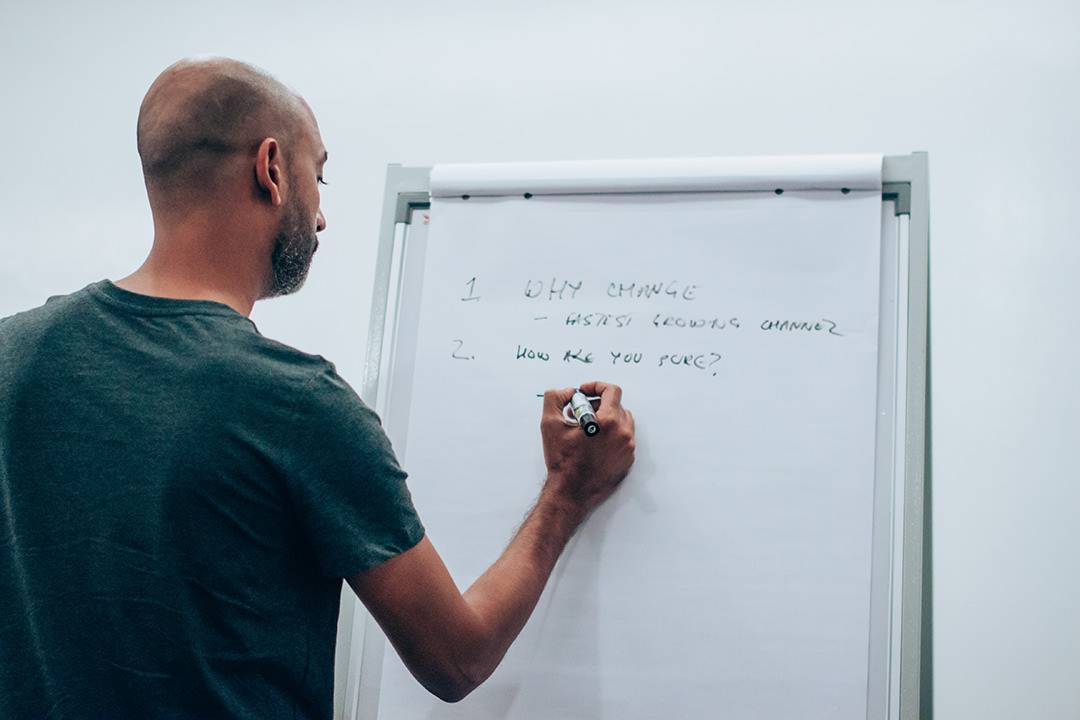 1 WHY CHANGE
- FASTEST GROWING CHANNEL
2. HOW ARE YOU SURE?
-